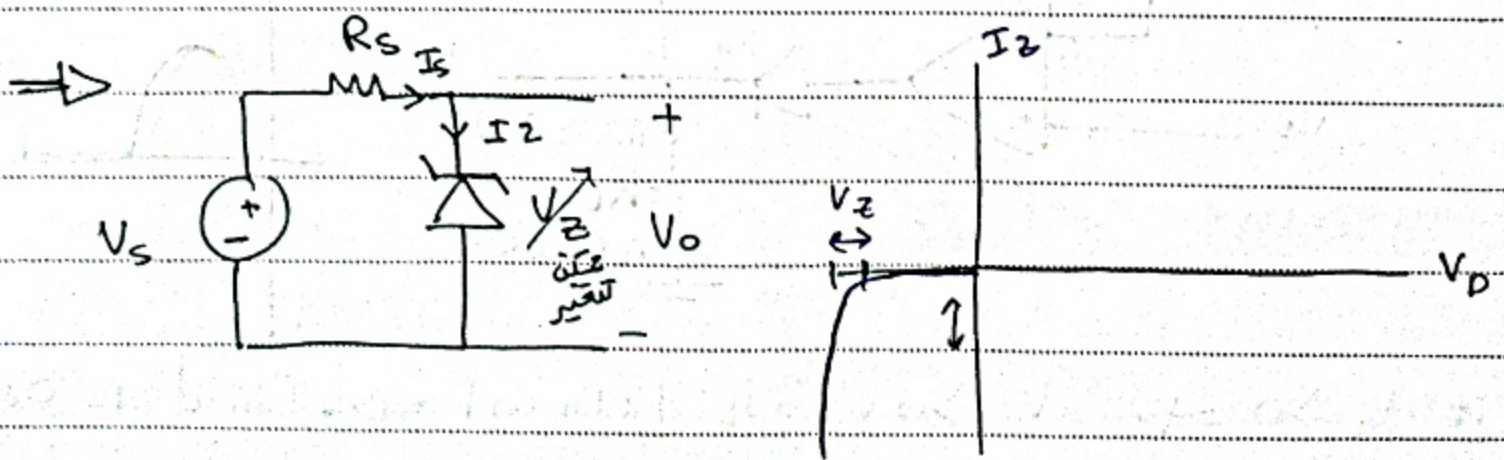 Rs
Is
Iz
Vs
+
-
Vz
ممكن
تتغير
+
Vo
-
Iz
Vz
VD